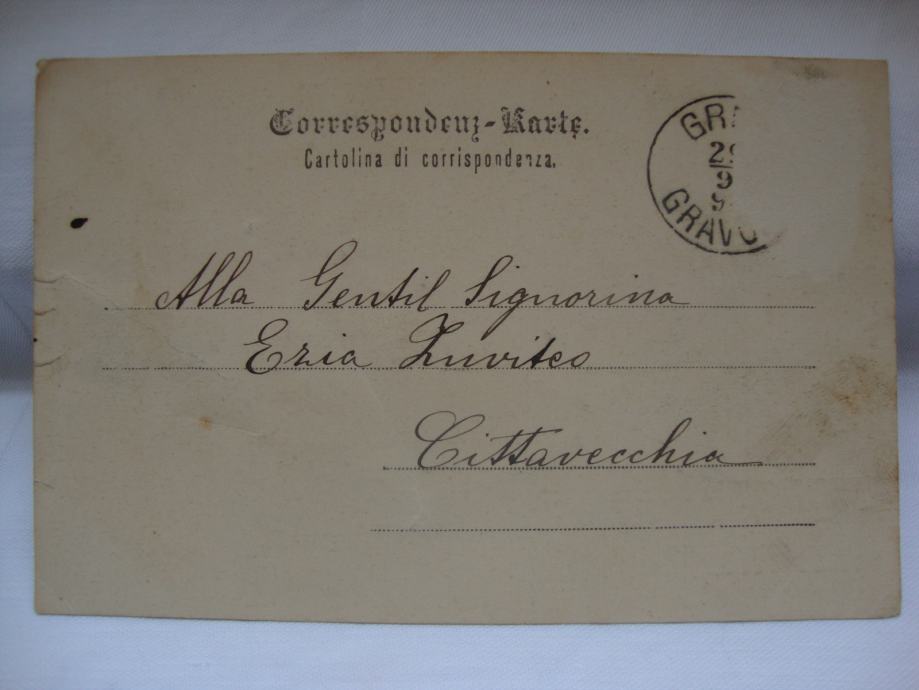 Correspondenz-Karte.
Cartolina di corrispondenza.
Alla Gentil Signorina
Ezia
Cittavecchia